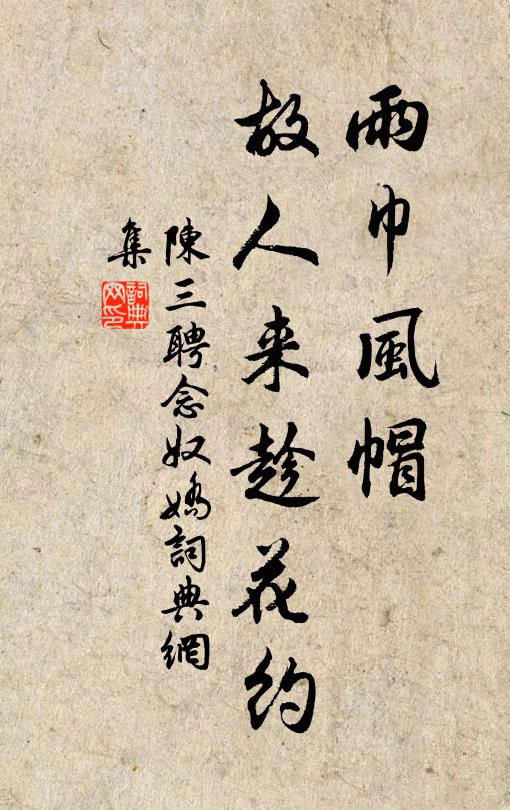 雨巾風帽
故人来趁花約
陳三聘念奴嬌詞典網
集
詞典
网印